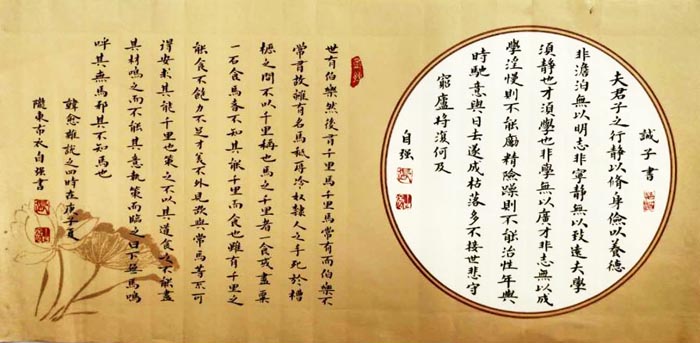 誡子書
夫君子之行靜以修身儉以養德
非澹泊無以明志非寧靜無以致遠夫學
須靜也才須學也非學無以廣才非志無以成
學淫慢則不能勵精險躁則不能治性年與
時馳意與日去遂成枯落多不接世悲守
窮廬將復何及
自强
世有伯樂然後有千里馬千里馬常有而伯樂不
常有故雖有名馬秪辱於奴隸人之手死於槽
櫪之間不以千里稱也馬之千里者一食或盡粟
一石食馬者不知其能千里而食也雖有千里之
能食不飽力不足才美不外見欲與常馬等不可
得安求其能千里也策之不以其道食之不能盡
其材鳴之而不能其意執策而臨之曰下無馬嗚
呼其無馬邪其不知馬也
韓愈雜說之四時在庚子夏
隴東布衣自强書